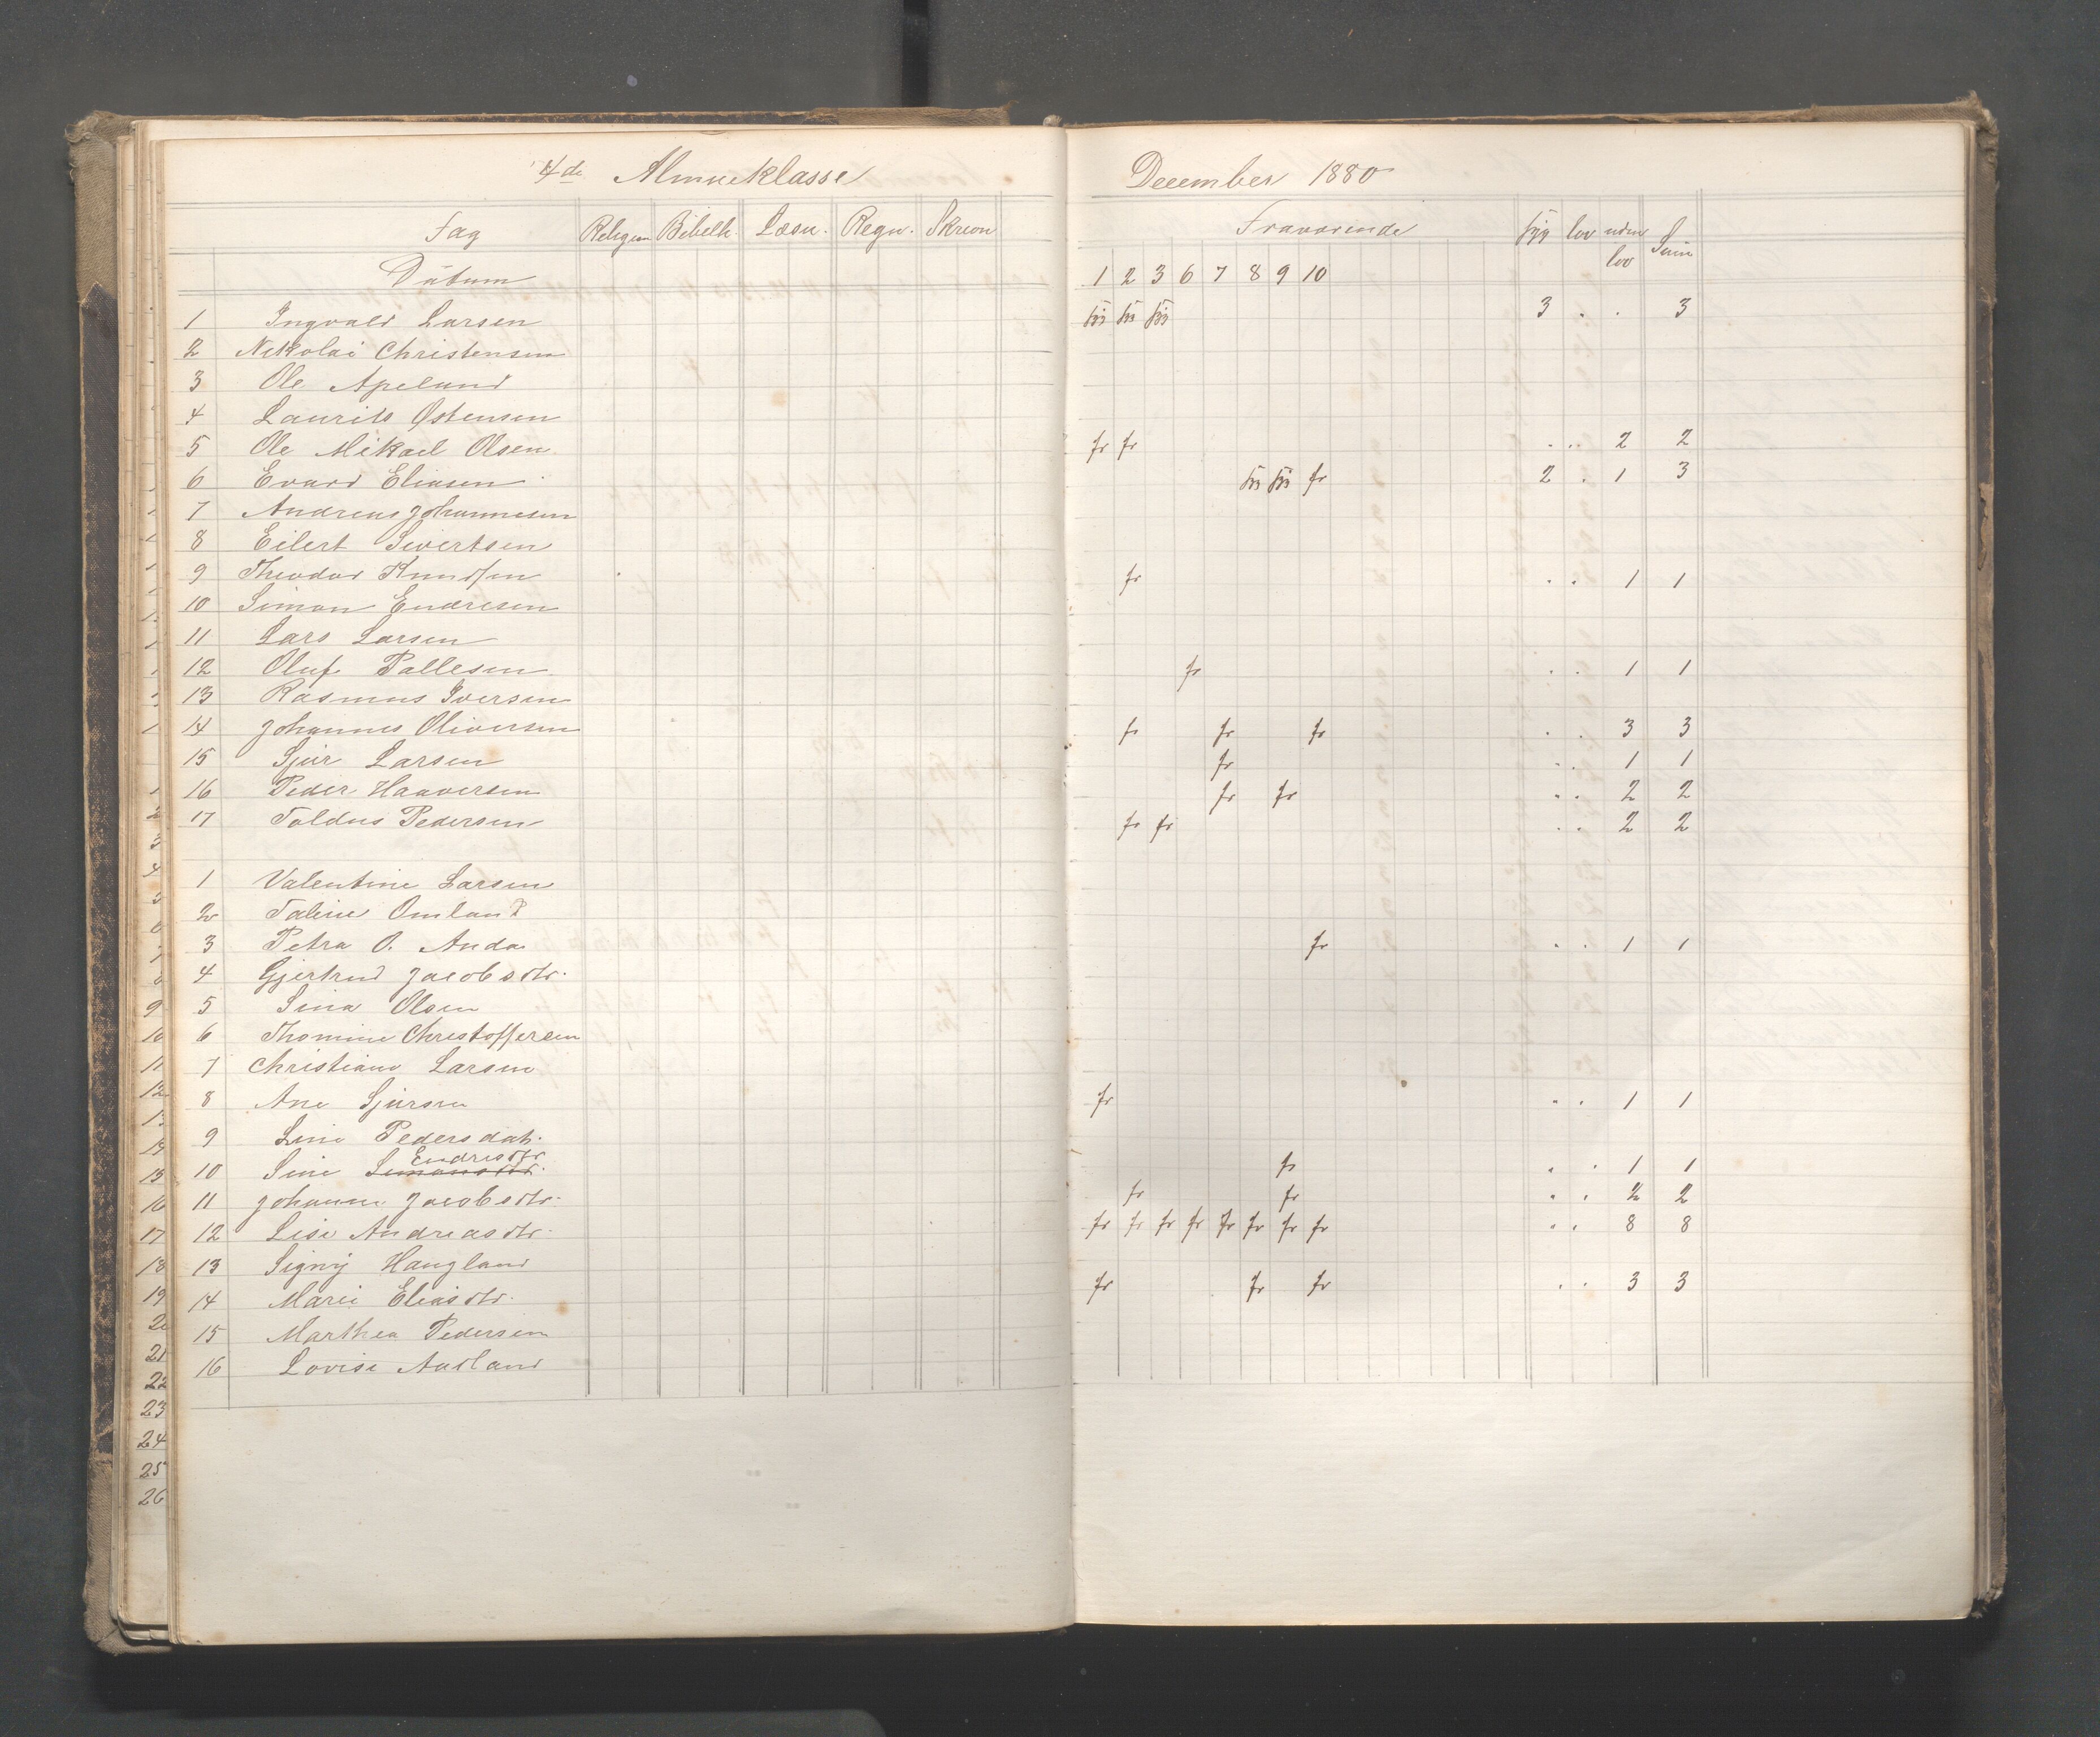 4de Almueklasse
Fag Religion Bibelh. Læsn. Regn. Skrivn
Datum
1 Ingvald Larsen
2 Nikolai Christensen
3 Ole Apeland
4 Laurits Østensen
5 Ole Mikael Olsen
6 Evard Eliasen
7 Andreas Johannesen
8 Eilert Sivertsen
9 Theodor Knudsen
10 Simon Endresen
11 Lars Larsen
12 Oluf Pallesen
13 Rasmus Iversen
14 Johannes Oliversen
15 Sjur Larsen
16 Peder Haaversen
17 Toldus Pedersen
1 Valentine Larsen
2 Taline Omland
3 Petra O. Anda
4 Gjertrud Jacobsdtr.
5 Sina Olsen
6 Thomine Christoffersen
7 Christiane Larsen
8 Ane Sjursen
9 Line Pedersdatr.
Endresdtr
10 Sine Simonsdtr.
11 Johanne Jacobsdtr.
12 Lise Andreasdtr.
13 Signy Haugland
14 Marie Eliasdtr.
15 Marthea Pedersen
16 Lovise Aurland
December 1880
Fraværende syg lov uden lov Sum
1 2 3 6 7 8 9 10
syg syg syg 3 . . 3
fr fr . . 2 2
syg syg fr 2 . 1 3
fr . . 1 1
fr . . 1 1
fr fr fr . . 3 3
fr . . 1 1
fr fr . . 2 2
fr fr . . 2 2
fr . . 1 1
fr . . 1 1
fr . . 1 1
fr fr . . 2 2
fr fr fr fr fr fr fr fr . . 8 8
fr fr fr . . 3 3
2
3
4
9
10
11
12
15
16
17
18
19
20
21
22
23
24
25
26